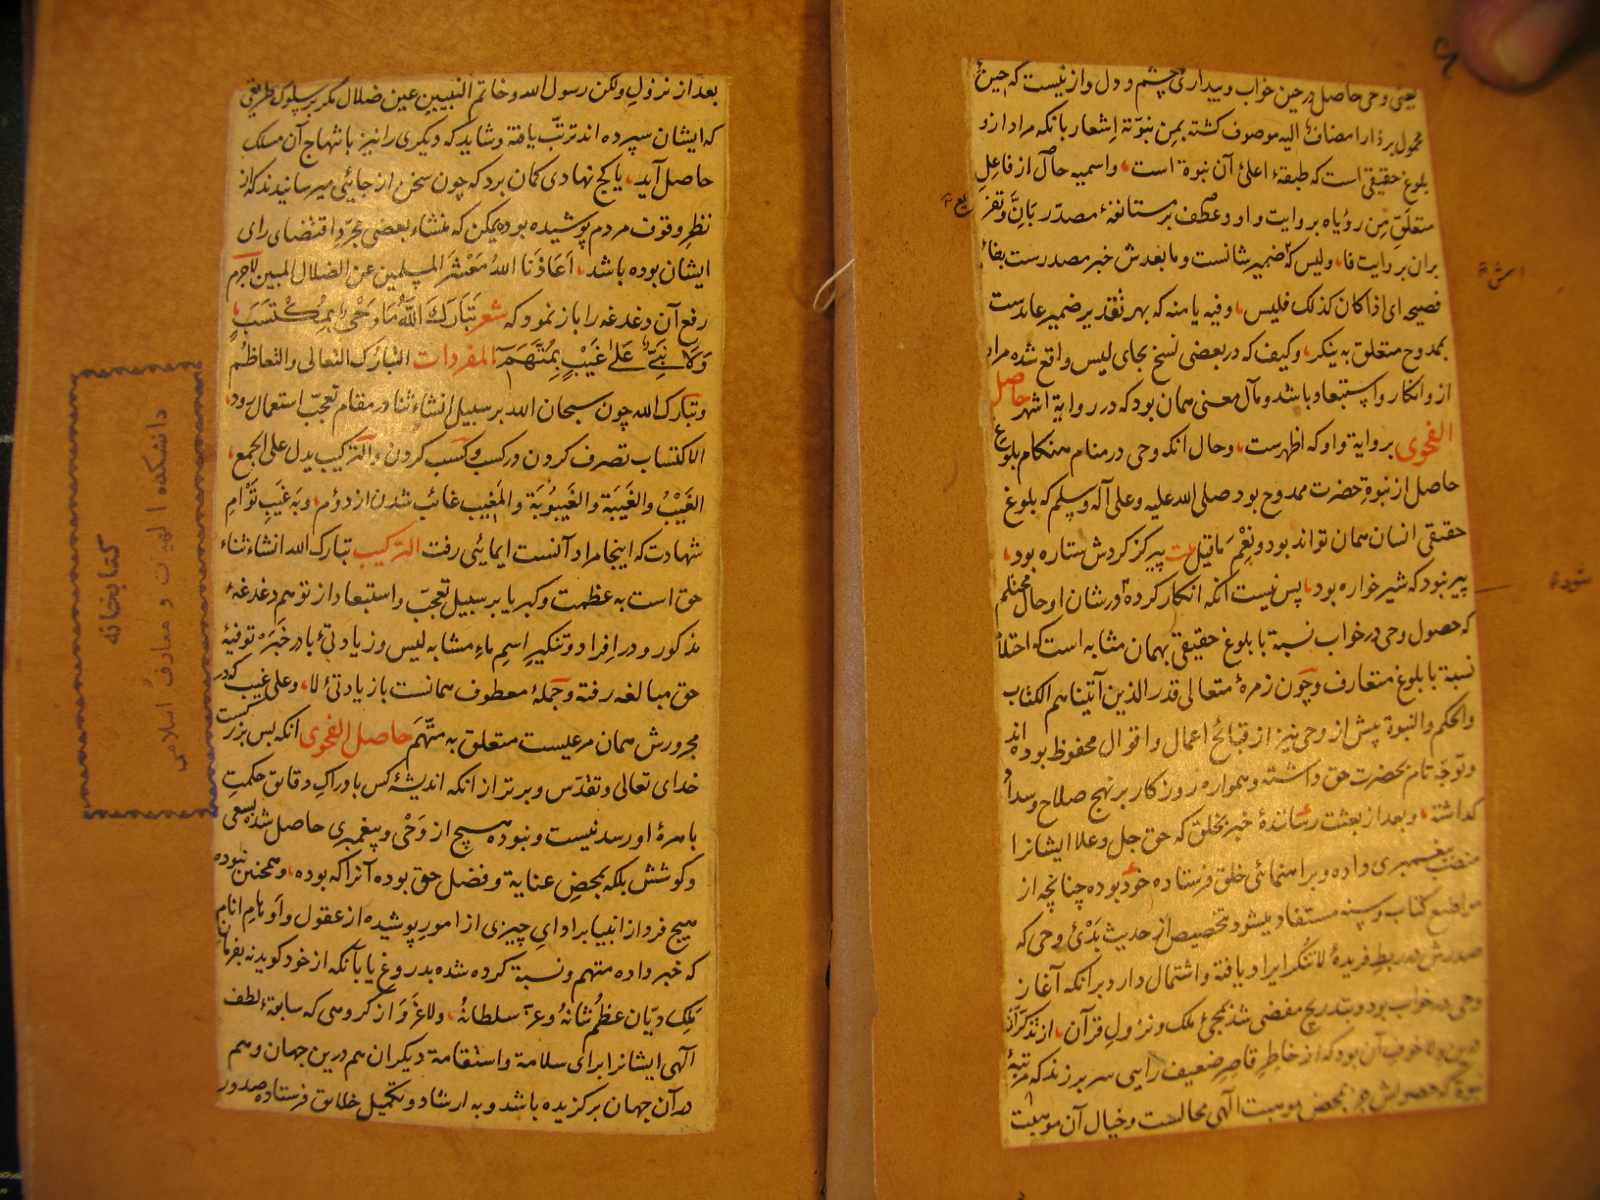 یعنی وحی حاصل در حین خواب و بیداری چشم و دل و از نیست که حین
محمول بر و ارا مضاف الیه موصوف کشته بمن نبوته اشعار بانکه مراد ازو
بلوغ حقیقی است که طبقهٔ اعلیٔ آن نبوة است، واسمیه حال از فاعل
متعلق من رؤیاه بروایت واو و عطف بر مستانفهٔ مصدر بان و تفر
بران بروایت فا، ولیس که ضمیر شانست و ما بعدش خبر مصدرست بفاء
فصیحه ای اذا کان کذلک فلیس، وفیه یا منه که بهر تقدیر ضمیر عایدست
بممدوح متعلق به ینکر، وکیف که در بعضی نسخ بجای لیس واقع شده مراد
ازو انکار و استبعاد باشد ومآل معنی همان بود که در روایة اشهر حاصل
الفحوی بروایة واو که اظهرست، وحال انکه وحی در منام هنکام بلوغ
حاصل از نبوة حضرت ممدوح بود صلی الله علیه وعلی آله وسلم که بلوغ
حقیقی انسان همان تواند بود و نعم ما قیل بیت پیر کز کردش ستاره بود،
پیر نبود که شیرخواره بود، پس نیست آنکه انکار کرده در شان او حال محتلم
که حصول وحی در خواب نسبة با بلوغ حقیقی بهمان مثابه است که احتلام
نسبة با بلوغ متعارف وچون زمرهٔ متعالی قدر الذین آتیناهم الکتاب
والحکم والنبوة پیش از وحی نیز از قبائح اعمال و اقوال محفوظ بوده اند
و توجه تام بحضرت حق داشته و همواره روزکار بر نهج صلاح و سداد
کداشته، و بعد از بعثت رسانندهٔ خبر بخلق که حق جل وعلا ایشانرا
منصب پیغمبری داده و براهنمائی خلق فرستاده خود بوده چنانچه از
مواضع کتاب و سنه مستفاد میشود بتخصیص از حدیث بدئ وحی که
صدرش در ربط فریدهٔ لا تنکر ایراد یافته و اشتمال دارد بر آنکه آغاز
وحی در خواب بود و بتدریج مفضی شد بمجیٔ ملک و نزول قرآن، از تذکر آن
درین ولا خوف آن بود که از خاطر قاصر ضعیف رایی سر برزند که مرتبهٔ
نبوة که حصولش جز بمحض موهبت آلهی محالست و خیال آن موهبت
بعد از نزول ولکن رسول الله وخاتم النبیین عین ضلال مکر بر سلوک طریقی
که ایشان سپرده اند ترتب یافته و شاید که دیکری را نیز با نتهاج آن مسلک
حاصل آید، یا کج نهادی کمان برد که چون سخن از جایی میرسانیدند که از
نظر وقوف مردم پوشیده بود یمکن که منشاء بعضی مجرد اقتضای رای
ایشان بوده باشد، اعاذنا الله معشر المسلمین عن الضلال المبین لاجرم
رفع آن دغدغه را باز نمود که شعر تبارک الله ما وحی بمکتسب،
ولا نبی علی غیب بمتهم المفردات التبارک التعالی والتعاظم
و تبارک الله چون سبحان الله بر سبیل انشاء ثنا در مقام تعجب استعمال رود،
الاکتساب تصرف کردن در کسب و کسب کردن والترکیب یدل علی الجمع،
الغیب والغیبة والغیبوبة والمغیب غائب شدن از دوم، و به غیب توام
شهادت که اینجا مراد آنست ایمائی رفت الترکیب تبارک الله انشاء ثناء
حق است به عظمت و کبریا بر سبیل تعجب و استبعاد از توهم دغدغهٔ
مذکور و در افراد و تنکیر اسم ماء مشابه لیس و زیادتیٔ با در خبره توفیهٔ
حق مبالغه رفته و جملهٔ معطوف همانست با زیادتیٔ لا، و علی غیب که در
مجرورش همان مرعیست متعلق به متهم حاصل الفحوی انکه بس بزرکست
خدای تعالی و تقدس و برتر از انکه اندیشهٔ کس با دراک دقائق حکمت
بامرهٔ او رسد نیست و نبوده هیچ از وحی و پیغمبری حاصل شده بسعی
و کوشش بلکه بمحض عنایة و فضل حق بوده آنرا که بوده، و همچنین نبوده
هیچ فرد از انبیا برادای چیزی از امور پوشیده از عقول و اوهام انام
که خبر داده متهم و نسبة کرده شده بدروغ یا بآنکه از خود کوید نه بفرمان
ملک دیان عظم شانه و عز سلطانه، ولا غرو از کروهی که سابقهٔ لطف
آلهی ایشانرا برای سلامة و استقامة دیکران هم درین جهان و هم
در آن جهان برکزیده باشد و به ارشاد و تکمیل خلائق فرستاده صدور
کتابخانه
دانشکده الهیات و معارف اسلامی